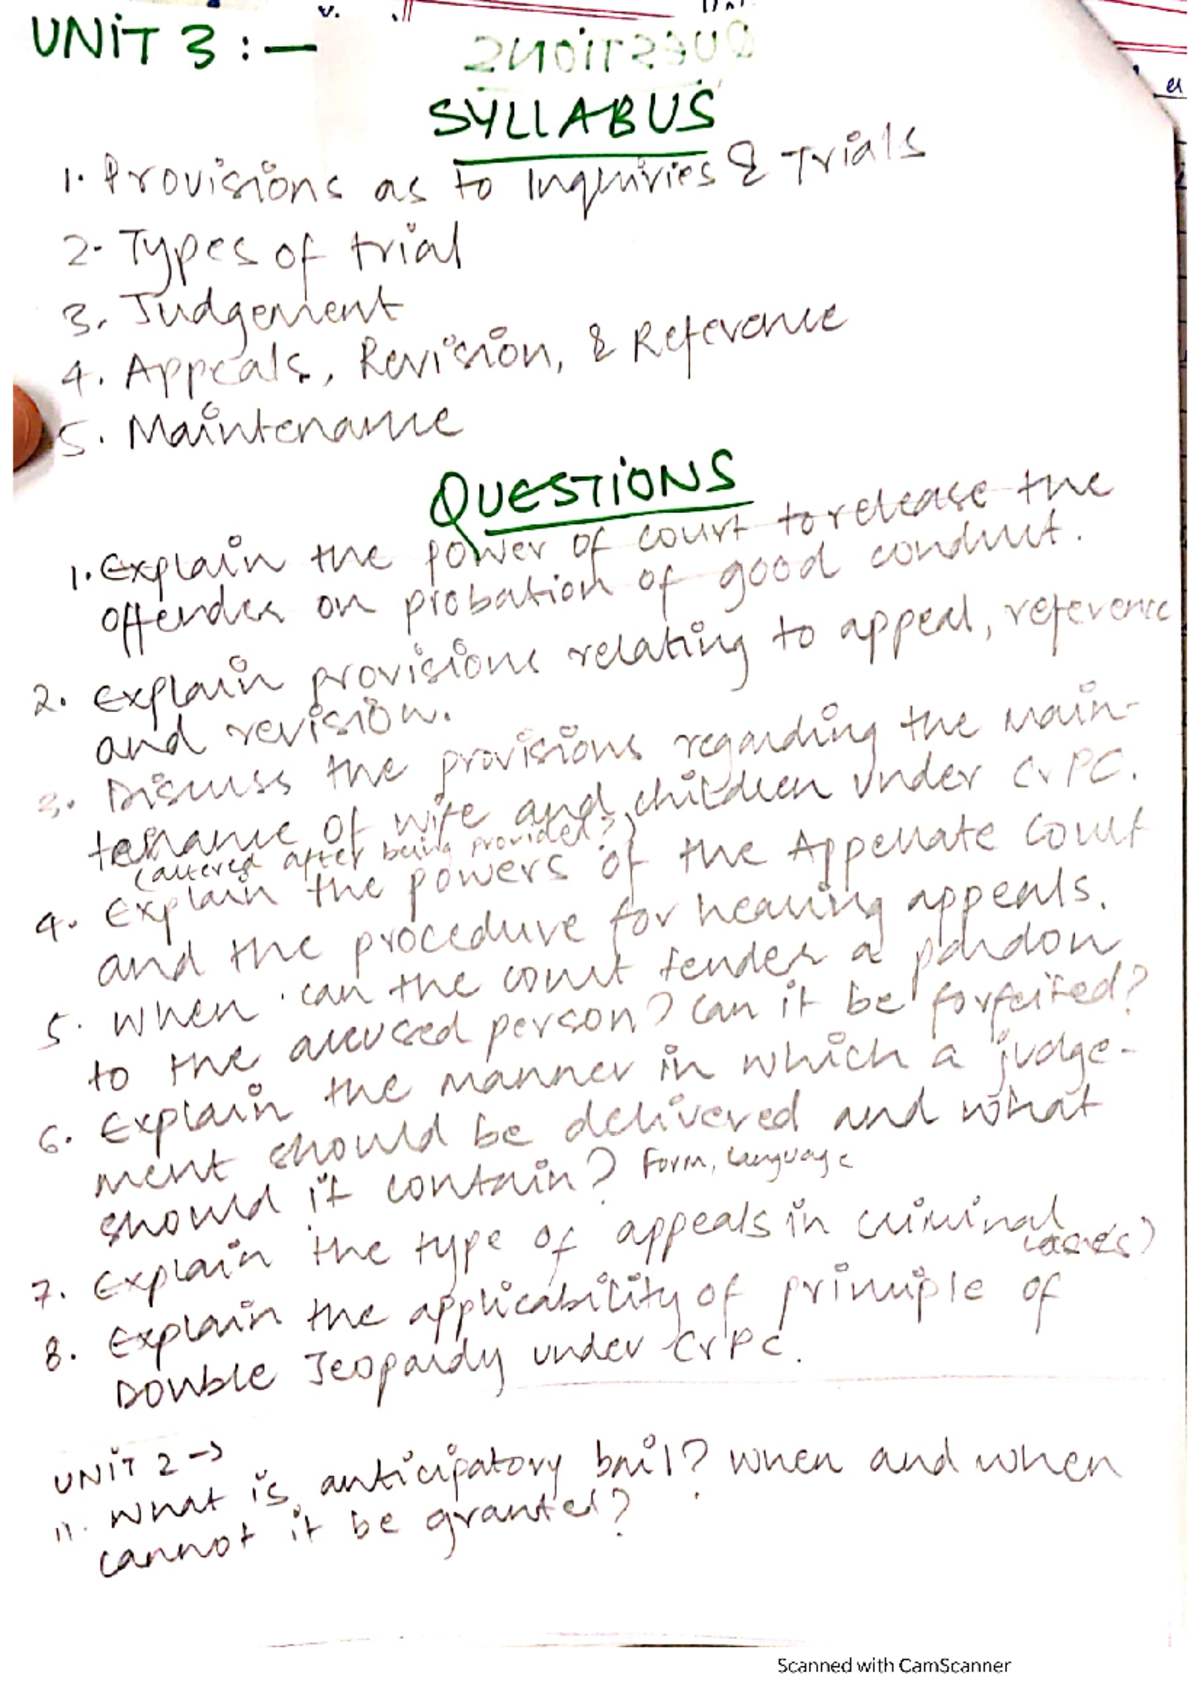 UNIT 3 : —
SYLLABUS
1. Provisions as to Inquiries & Trials
2. Types of trial
3. Judgement
4. Appeals, Revision, & Reference
5. Maintenance
QUESTIONS
1. Explain the power of court to release the
offender on probation of good conduct.
2. Explain provisions relating to appeal, reference
and revision.
3. Discuss the provisions regarding the main-
tenance of wife and children under CrPC.
(altered after being provided?)
4. Explain the powers of the Appellate Court
and the procedure for hearing appeals.
5. When can the court tender a pardon
to the accused person? Can it be forfeited?
6. Explain the manner in which a judge-
ment should be delivered and what
should it contain? Form, Language
7. Explain the type of appeals in criminal
cases?
8. Explain the applicability of principle of
Double Jeopardy under CrPC.
UNIT 2 →
11. What is anticipatory bail? When and when
cannot it be granted?
Scanned with CamScanner